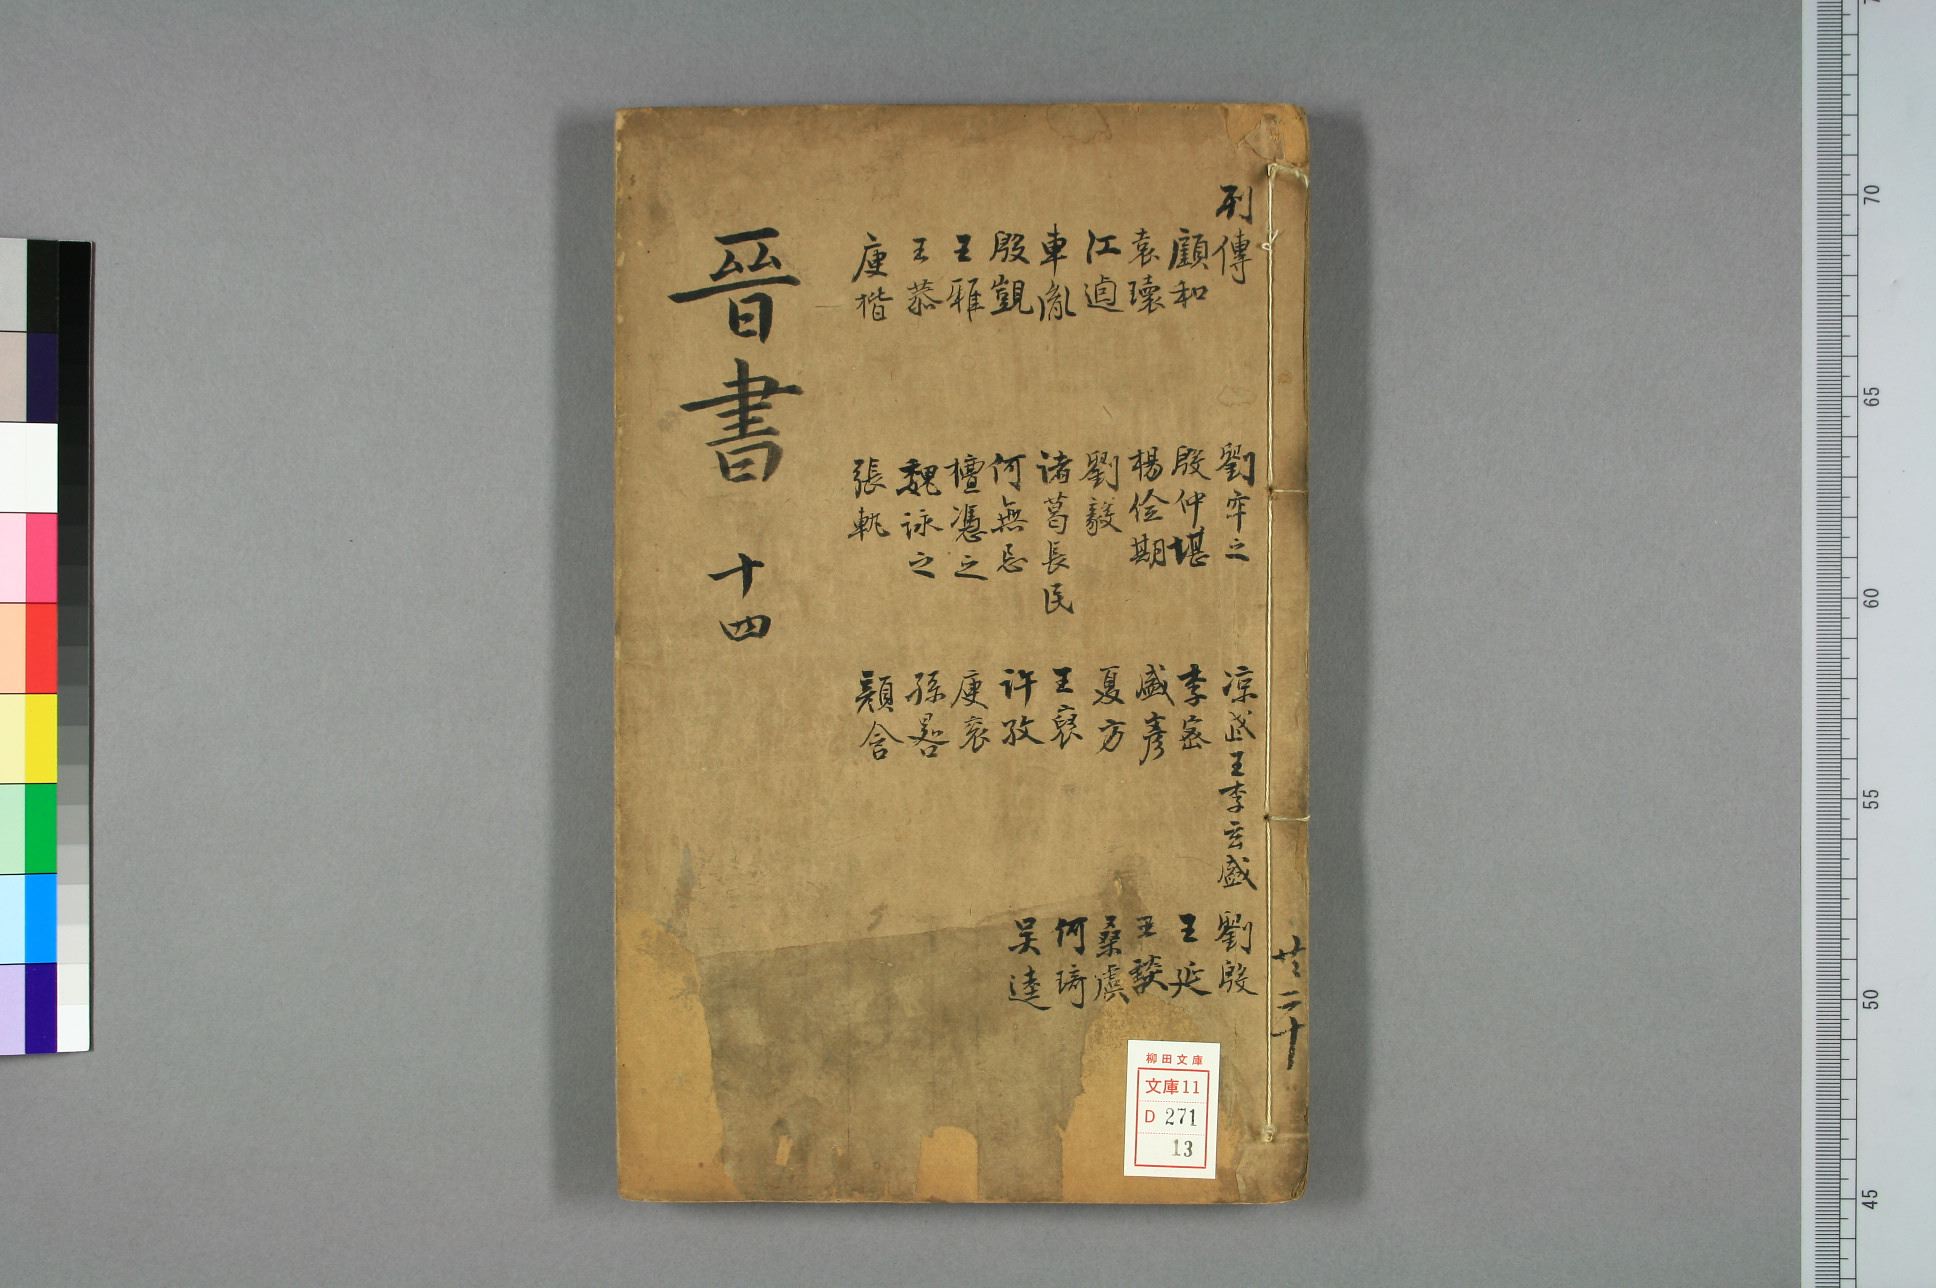 列傳
顧和
袁瓌
江逌
車胤
殷覬
王雅
王恭
庾楷
劉牢之
殷仲堪
楊佺期
劉毅
諸葛長民
何無忌
檀憑之
魏詠之
張軌
凉武王李玄盛
李密
盛彥
夏方
王裒
許孜
庾袞
孫晷
顏含
劉殷
王延
王談
桑虞
何琦
吴逵
晉書 十四
共二十
柳田文庫
文庫11
D 271
13
70
65
60
55
50
45